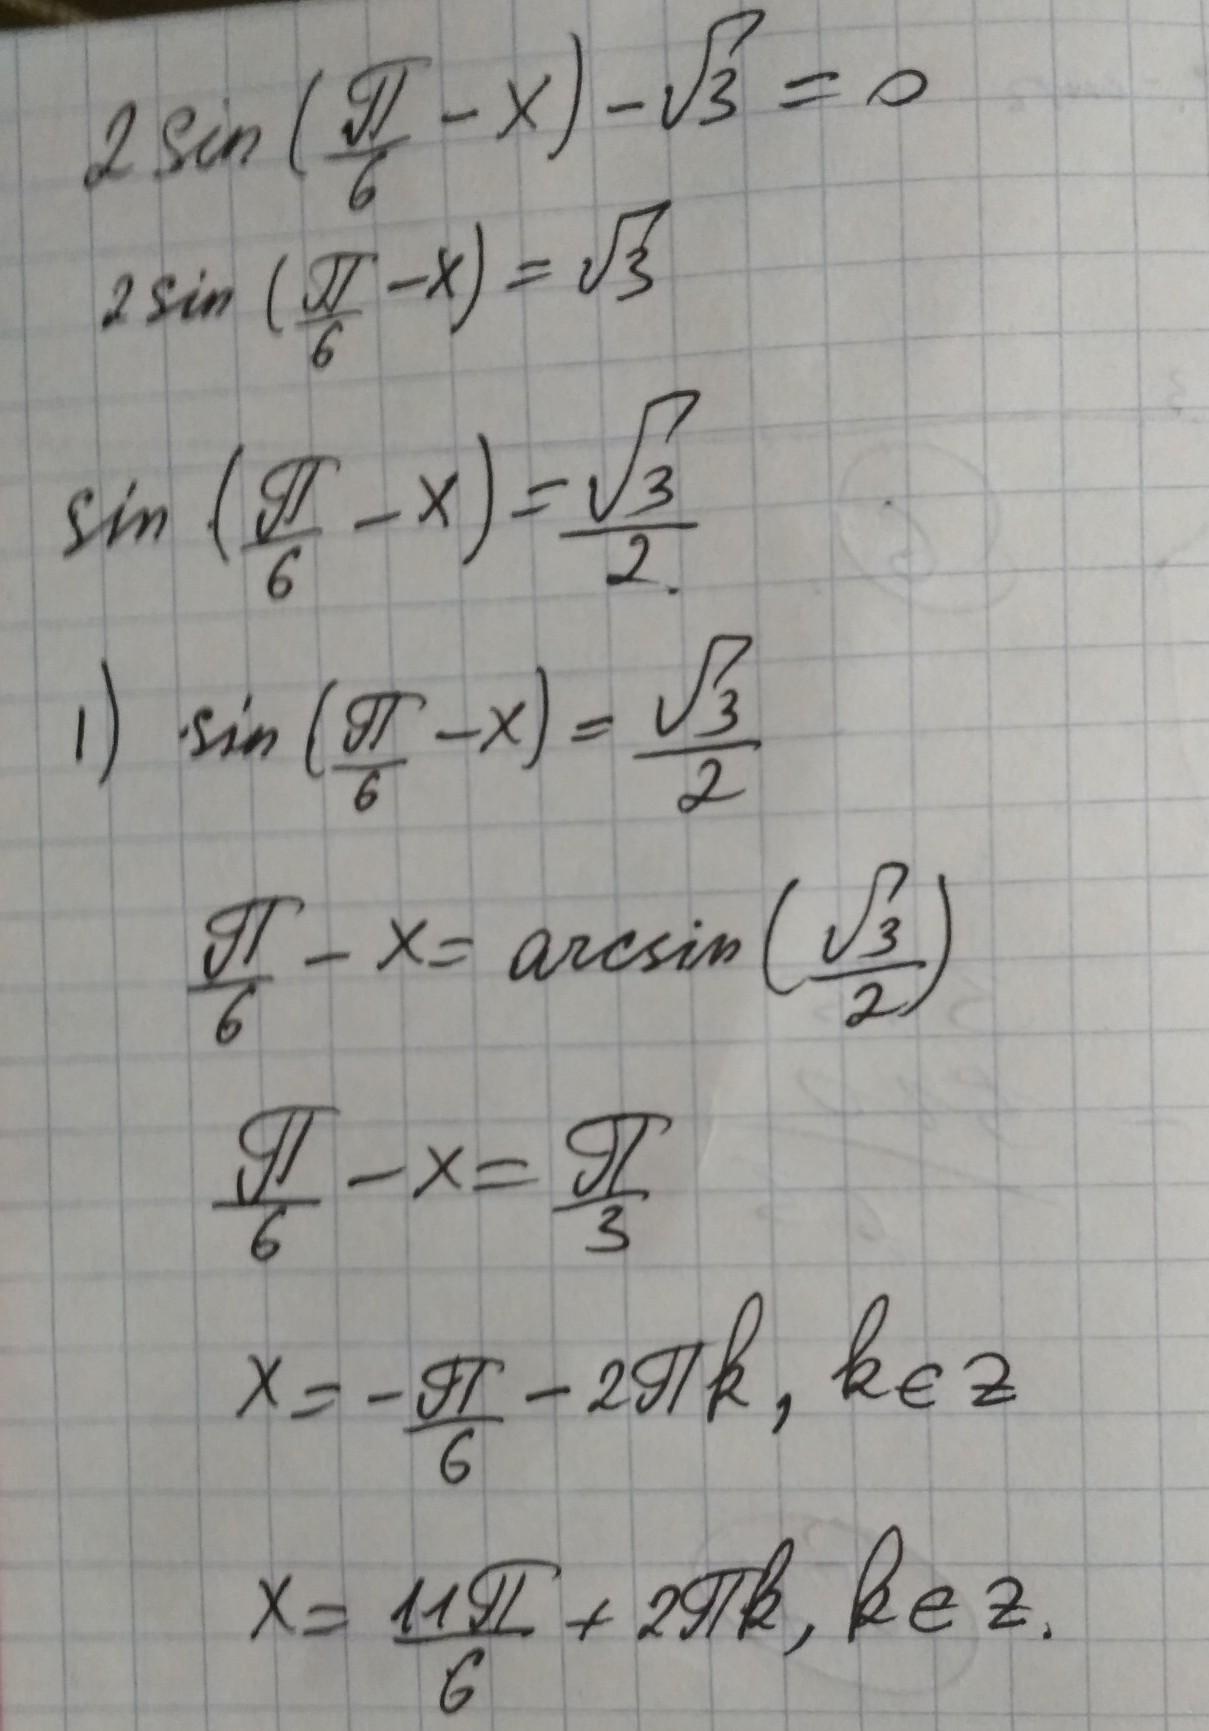 2 sin (π/6 - x) - √3 = 0
2 sin (π/6 - x) = √3
sin (π/6 - x) = √3/2.
1) sin (π/6 - x) = √3/2
π/6 - x = arcsin (√3/2)
π/6 - x = π/3
x = -π/6 - 2πk, k ∈ z
x = 11π/6 + 2πk, k ∈ z.